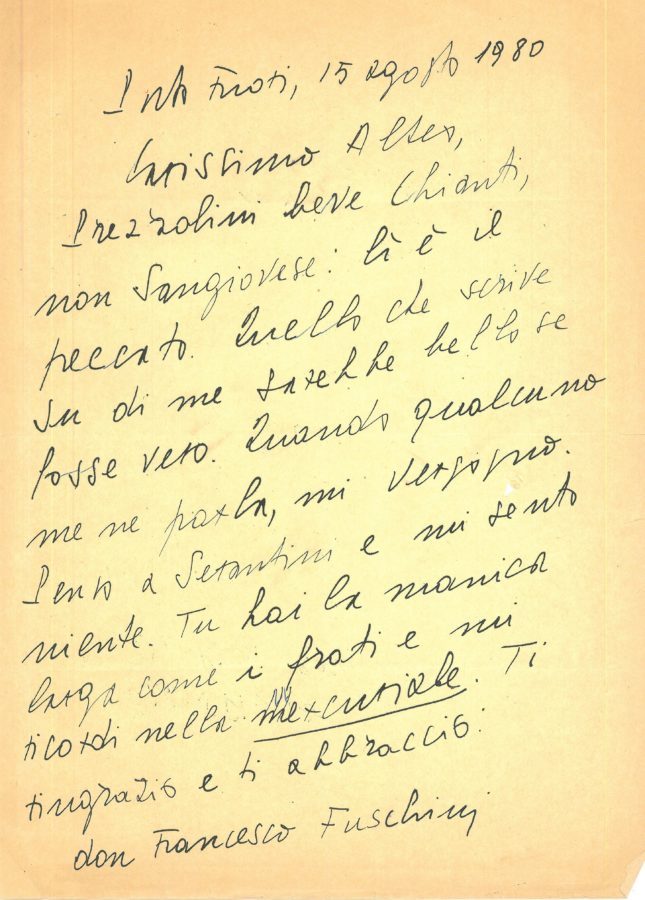 Porto Fuori, 15 agosto 1980
Carissimo Alteo,
Prezzolini beve Chianti,
non Sangiovese: lì è il
peccato. Quello che scrive
su di me sarebbe bello se
fosse vero. Quando qualcuno
me ne parla, mi vergogno.
Penso a Serantini e mi sento
niente. Tu hai la manica
larga come i frati e mi
ricordi nella mercuriale. Ti
ringrazio e ti abbraccio.
don Francesco Fuschini